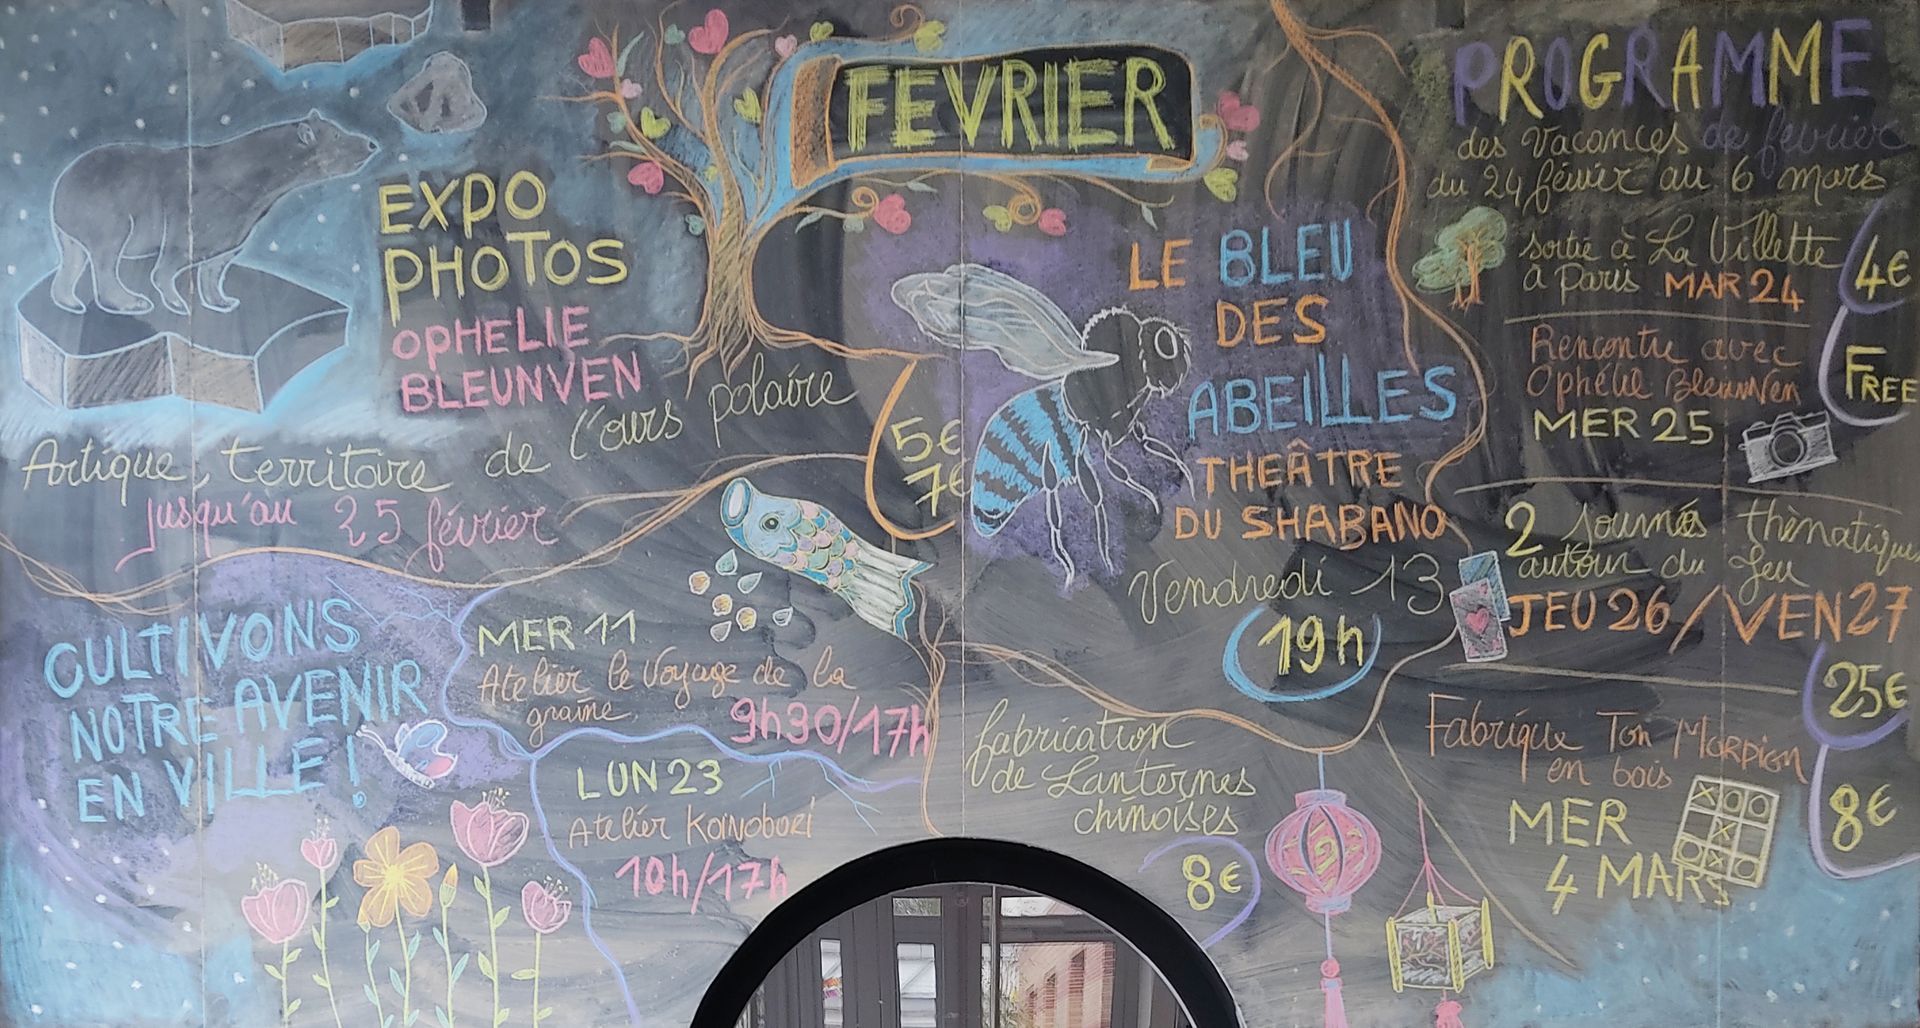 FEVRIER
EXPO
PHOTOS
OPHELIE
BLEUNVEN
Artique, territoire de l'ours polaire
jusqu'au 25 février
5€
7€
LE BLEU
DES
ABEILLES
THEÂTRE
DU SHABANO
Vendredi 13
19h
CULTIVONS
NOTRE AVENIR
EN VILLE !
MER 11
Atelier le Voyage de la
graine,
9h30/17h
LUN 23
Atelier KOINOBORI
10h/17h
fabrication
de Lanternes
chinoises
8€
PROGRAMME
des vacances de février
du 24 février au 6 mars
Sortie à La Villette
à Paris MAR 24
4€
Rencontre avec
Ophélie Bleunven
MER 25
FREE
2 journés thématiques
autour du Jeu
JEU 26 / VEN 27
25€
Fabrique Ton Morpion
en bois
MER
4 MARS
8€